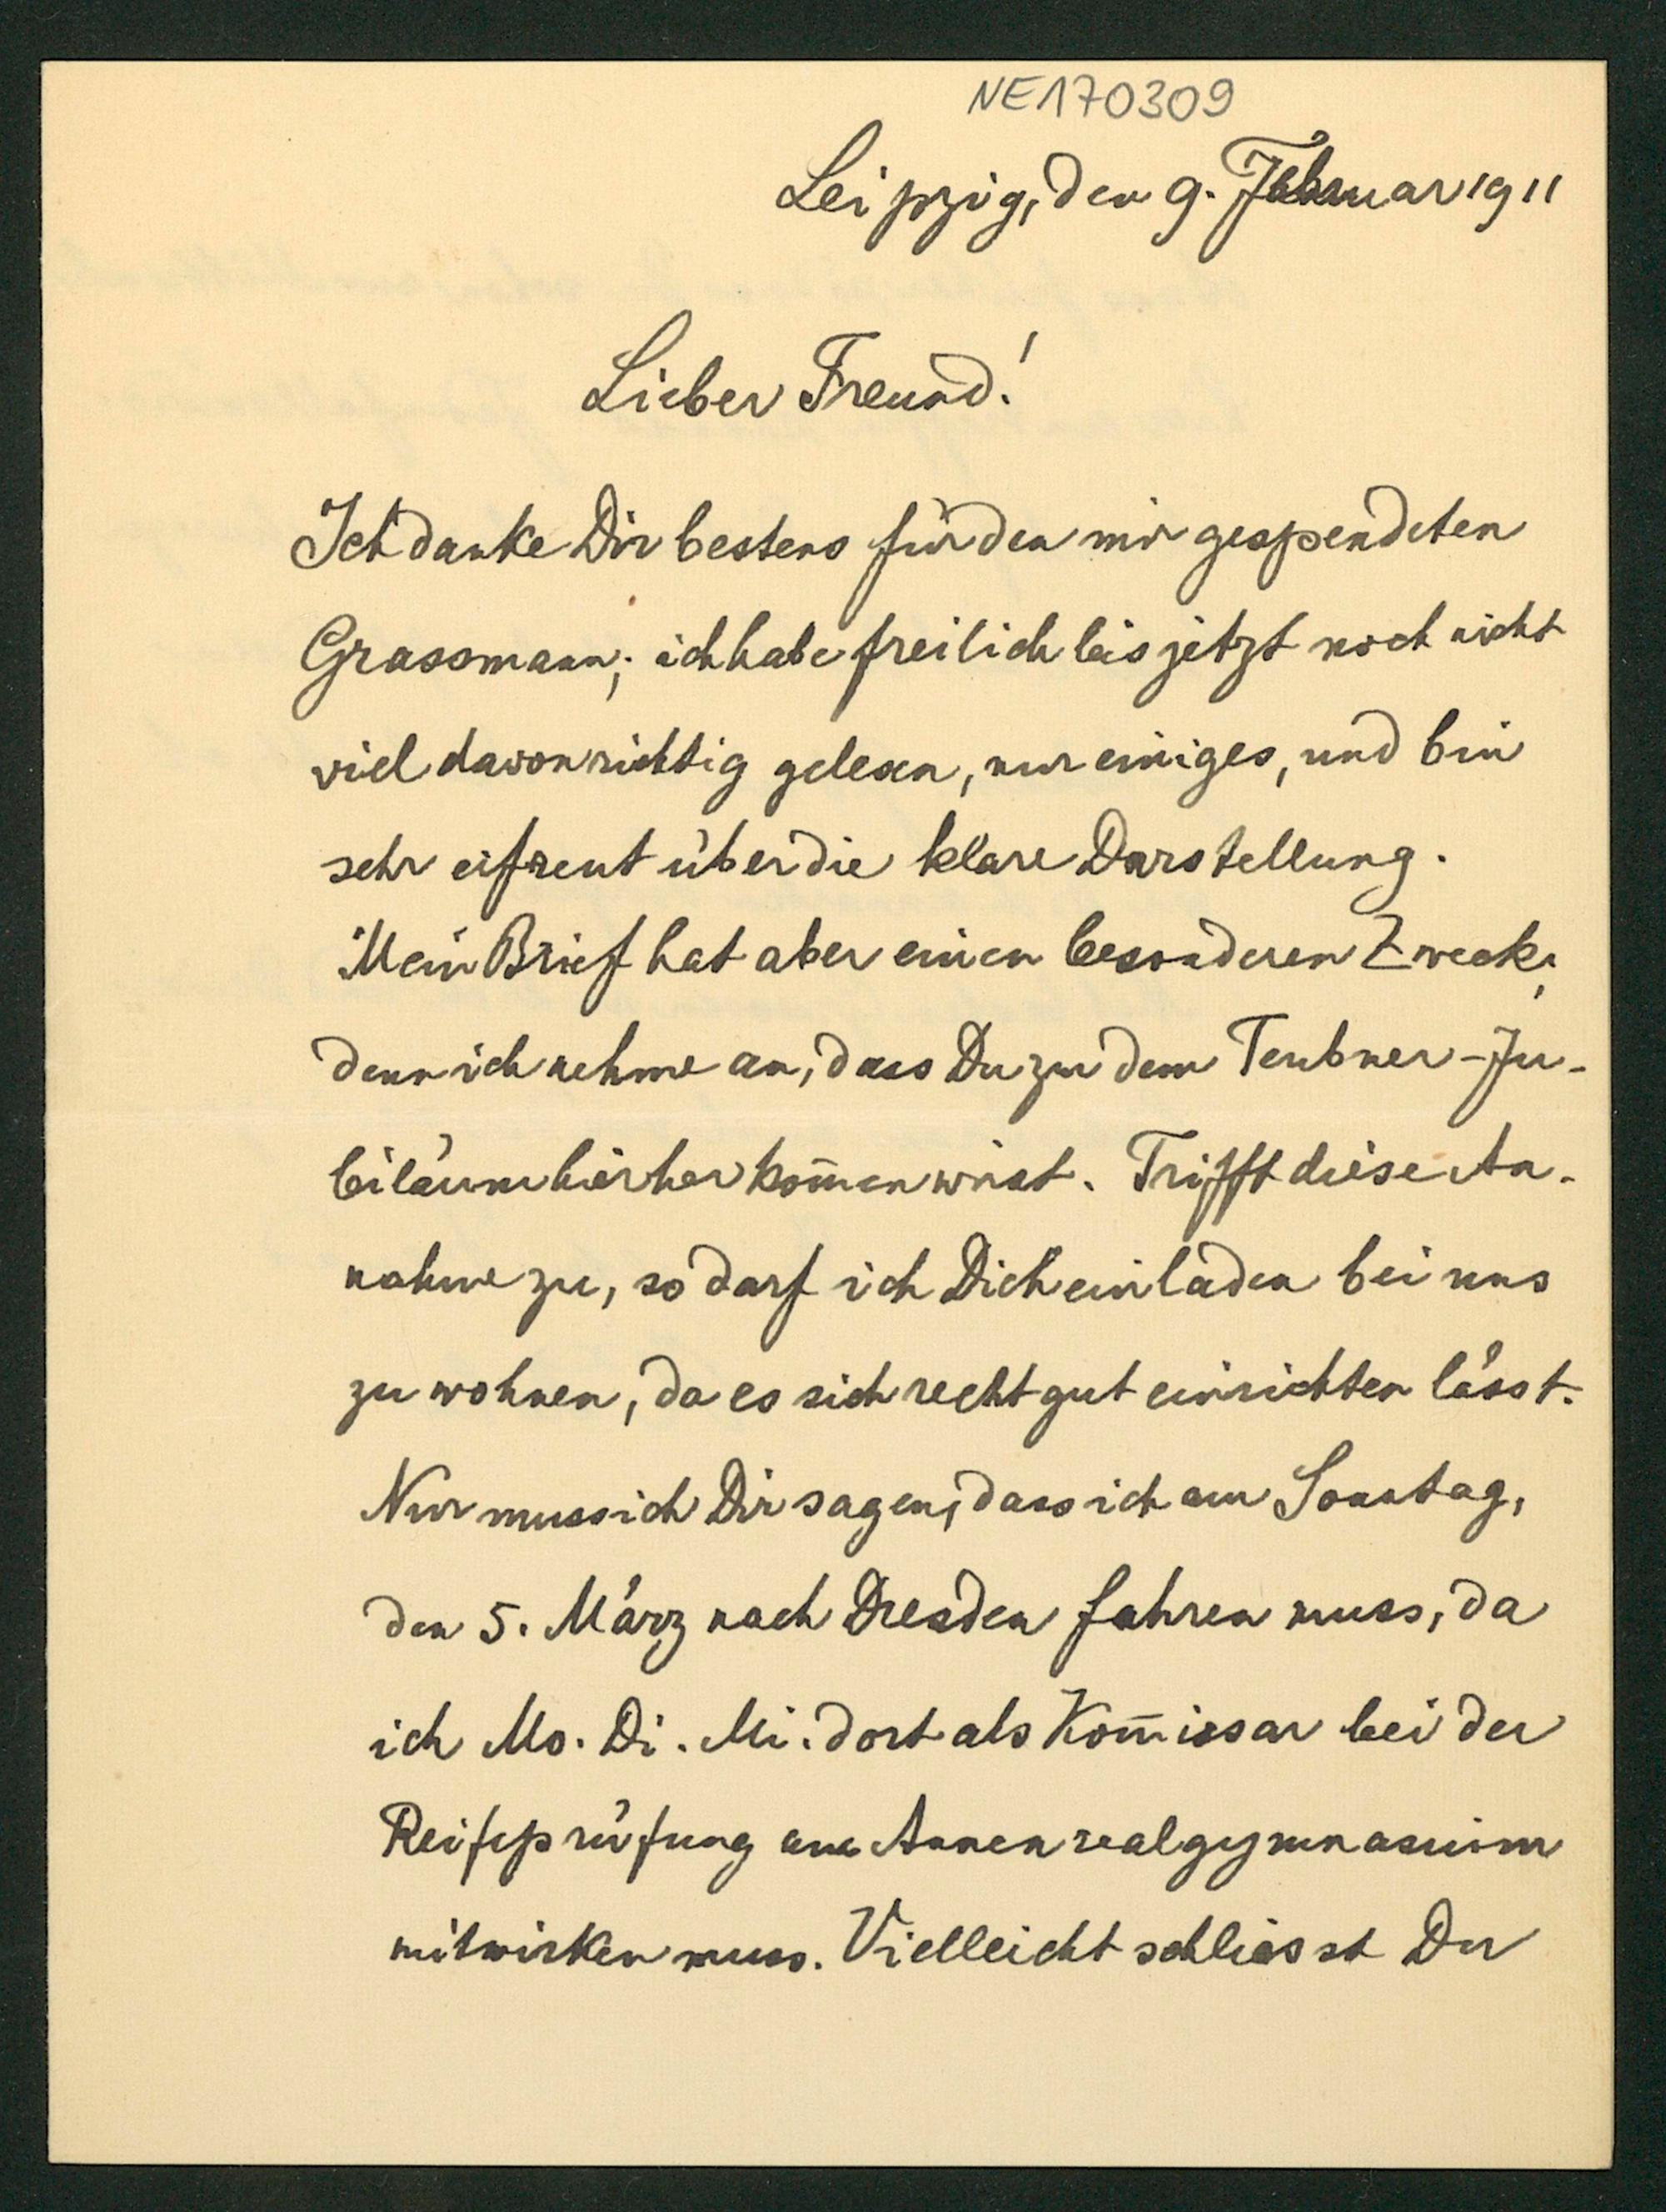 NE170309
Leipzig, den 9. Februar 1911
Lieber Freund!
Ich danke Dir bestens für den mir gespendeten
Grassmann; ich habe freilich bis jetzt noch nicht
viel davon richtig gelesen, nur einiges, und bin
sehr erfreut über die klare Darstellung.
Mein Brief hat aber einen besonderen Zweck,
denn ich nehme an, dass Du zu dem Teubner-Ju-
biläum hierher kom̅en wirst. Trifft diese An-
nahme zu, so darf ich Dich einladen bei uns
zu wohnen, da es sich recht gut einrichten lässt.
Nur muss ich Dir sagen, dass ich am Sonntag,
den 5. März nach Dresden fahren muss, da
ich Mo. Di. Mi. dort als Kom̅issar bei der
Reifeprüfung am Annenrealgymnasium
mitwirken muss. Vielleicht schliesst Du